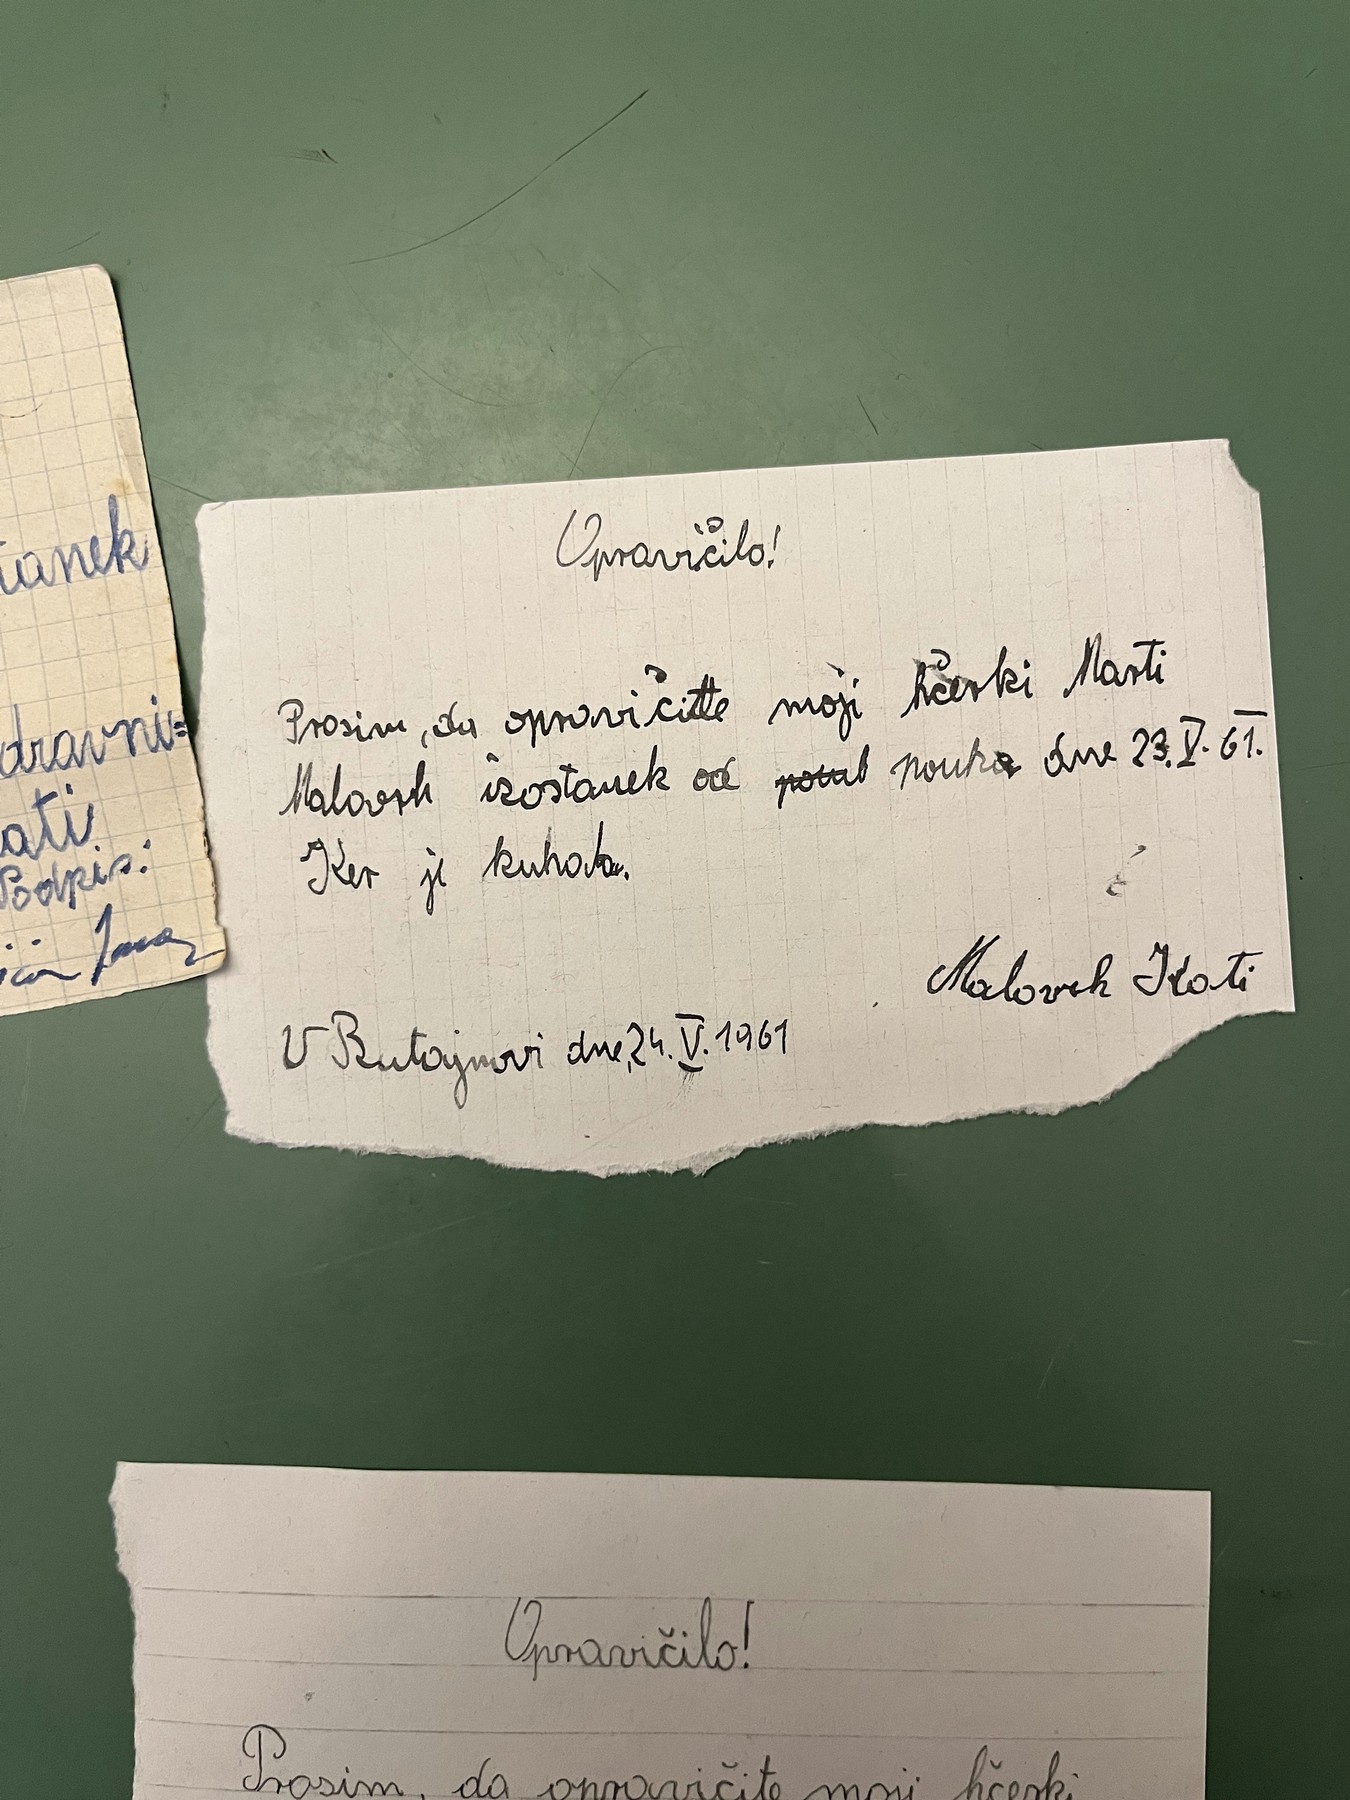 tanek
dravni=
ati
Podpis:
Opravičilo!
Prosim, da opravičitte moji hčerki Marti
Malovrh izostanek od pouka dne 23. V. 61.
Ker ji kuhala.
Malovrh Kati
V Butajnovi dne, 24. V. 1961
Opravičilo!
Prosim, da opravičite moji hčerki